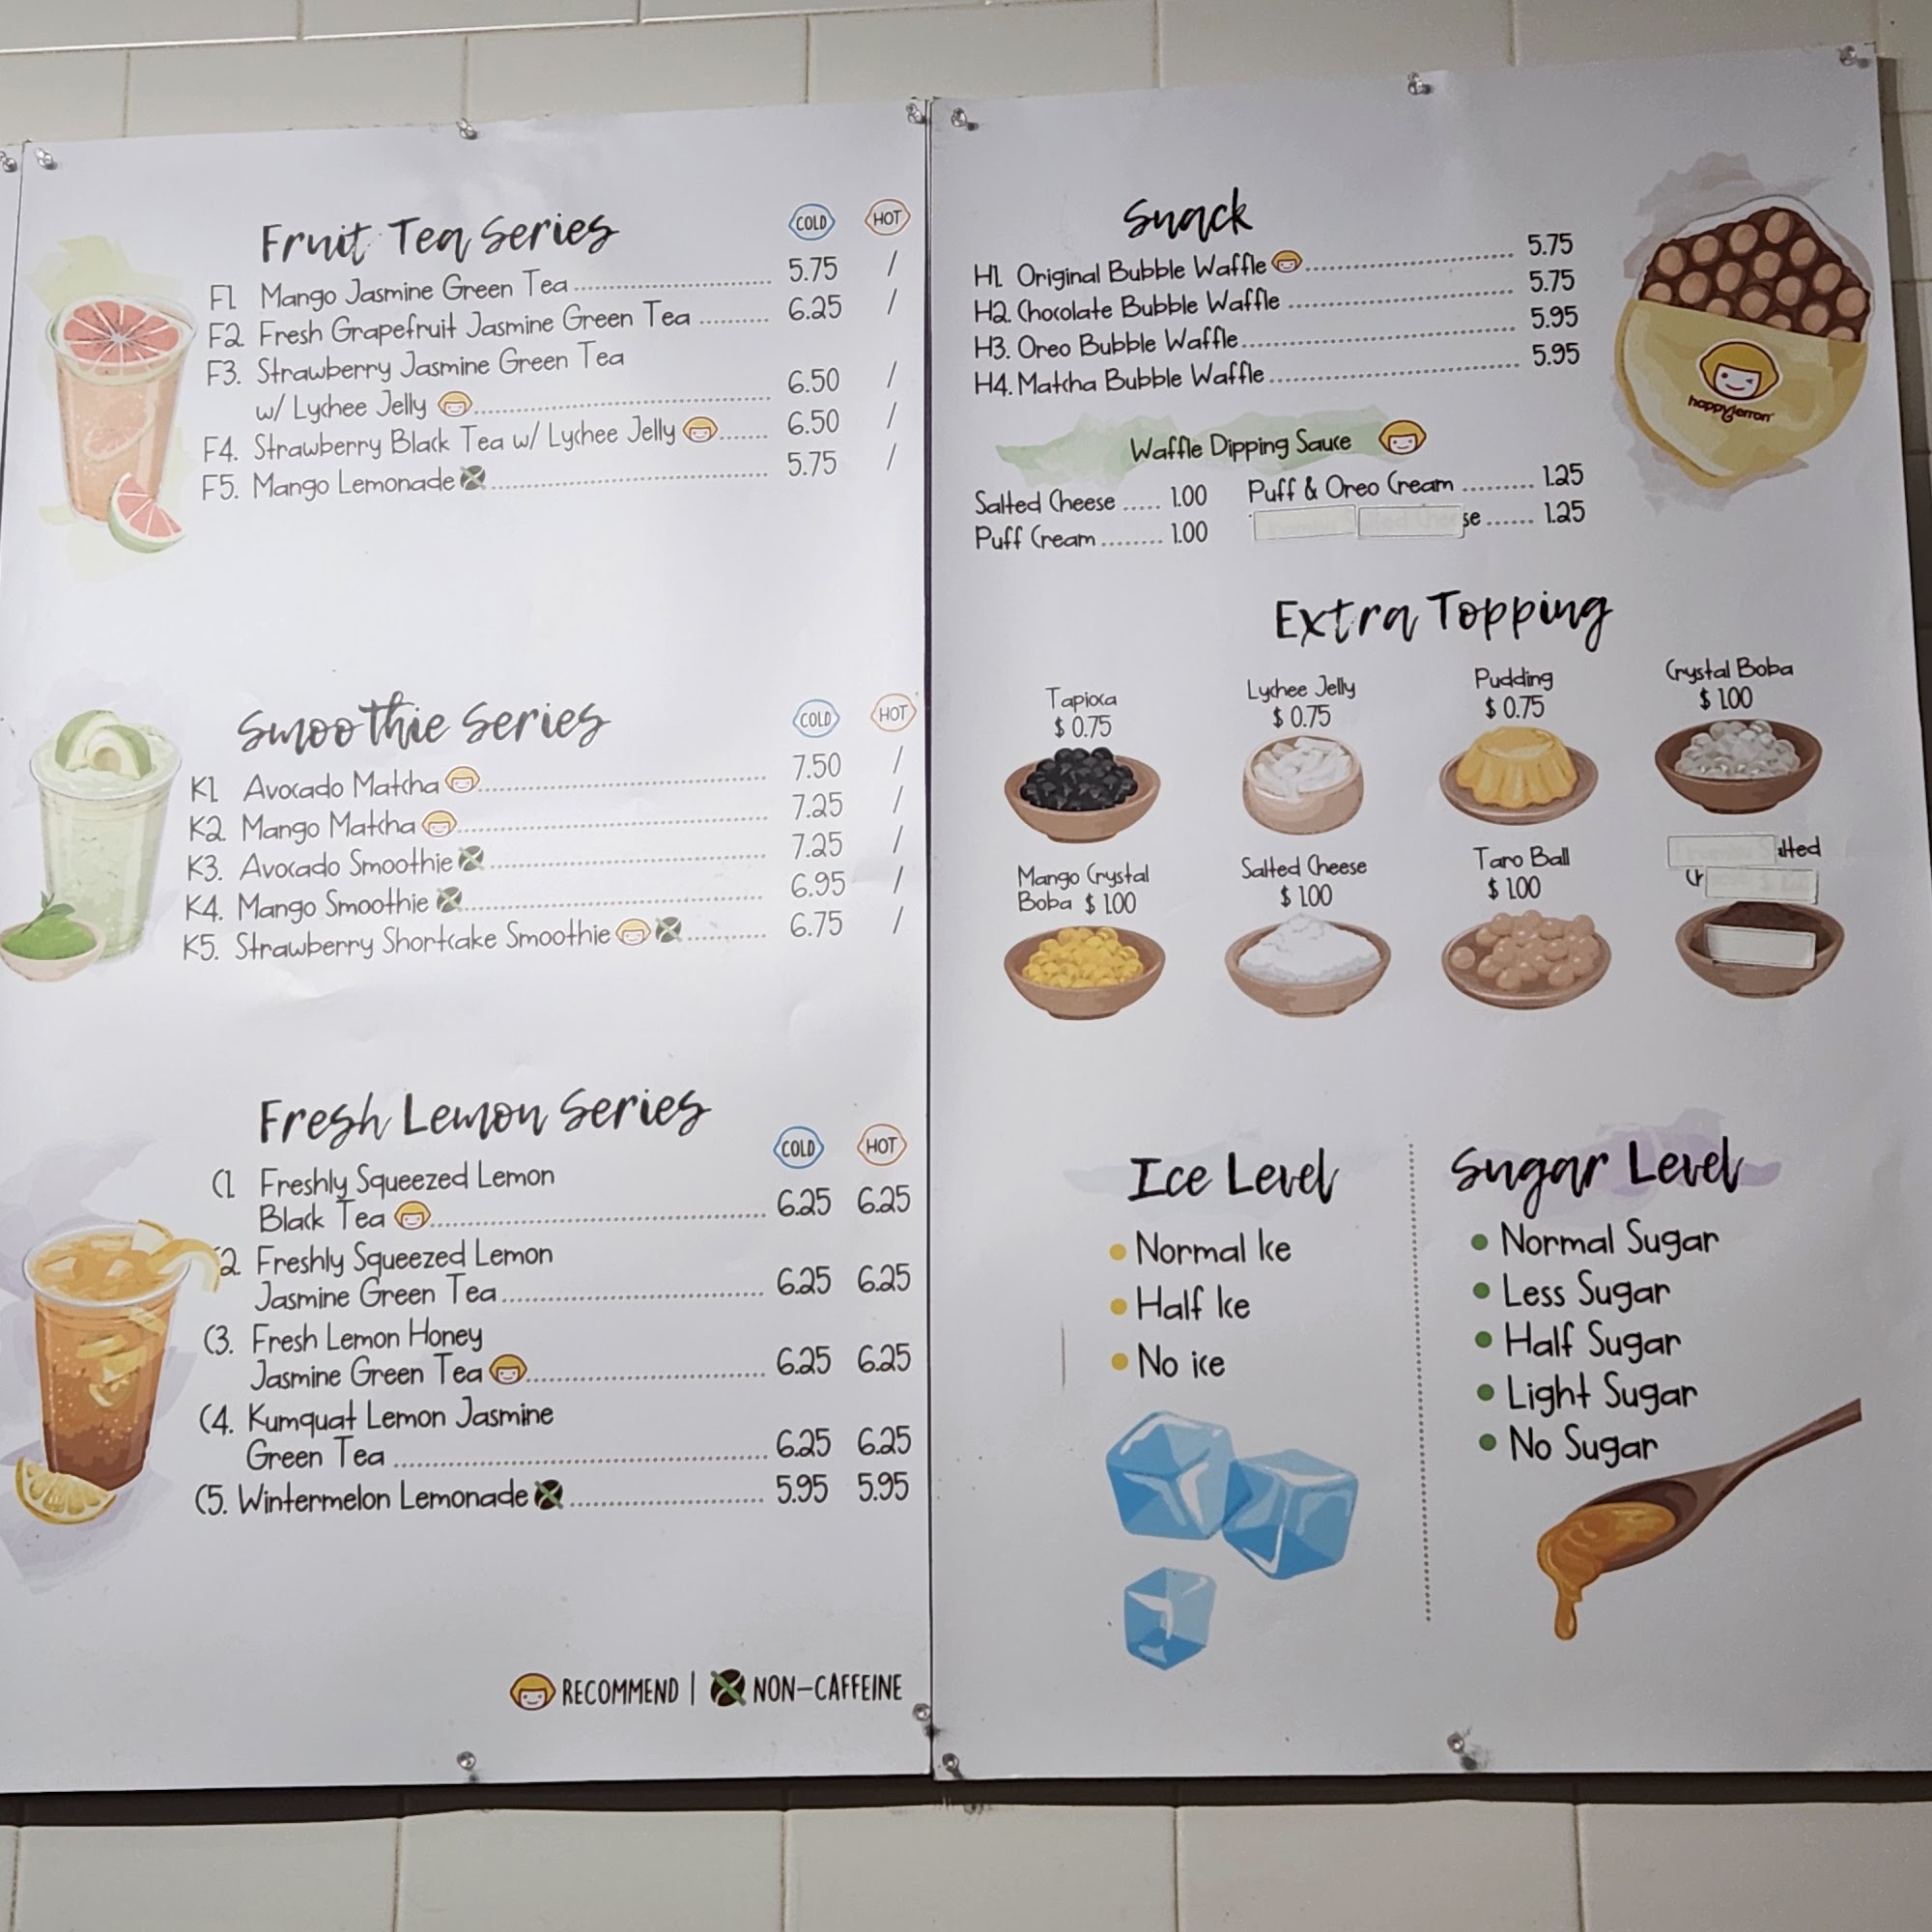 Fruit Tea Series
COLD HOT
F1. Mango Jasmine Green Tea 5.75 /
F2. Fresh Grapefruit Jasmine Green Tea 6.25 /
F3. Strawberry Jasmine Green Tea
w/ Lychee Jelly 6.50 /
F4. Strawberry Black Tea w/ Lychee Jelly 6.50 /
F5. Mango Lemonade 5.75 /
Smoothie Series
COLD HOT
K1. Avocado Matcha 7.50 /
K2. Mango Matcha 7.25 /
K3. Avocado Smoothie 7.25 /
K4. Mango Smoothie 6.95 /
K5. Strawberry Shortcake Smoothie 6.75 /
Fresh Lemon Series
COLD HOT
C1. Freshly Squeezed Lemon
Black Tea 6.25 6.25
2. Freshly Squeezed Lemon
Jasmine Green Tea 6.25 6.25
C3. Fresh Lemon Honey
Jasmine Green Tea 6.25 6.25
C4. Kumquat Lemon Jasmine
Green Tea 6.25 6.25
C5. Wintermelon Lemonade 5.95 5.95
RECOMMEND | NON-CAFFEINE
Snack
H1. Original Bubble Waffle 5.75
H2. Chocolate Bubble Waffle 5.75
H3. Oreo Bubble Waffle 5.95
H4. Matcha Bubble Waffle 5.95
happylemon
Waffle Dipping Sauce
Salted Cheese 1.00 Puff & Oreo Cream 1.25
Puff Cream 1.00 se 1.25
Extra Topping
Tapioca
$ 0.75
Lychee Jelly
$ 0.75
Pudding
$ 0.75
Crystal Boba
$ 1.00
Mango Crystal
Boba $ 1.00
Salted Cheese
$ 1.00
Taro Ball
$ 1.00
Ice Level
Normal Ice
Half Ice
No ice
Sugar Level
Normal Sugar
Less Sugar
Half Sugar
Light Sugar
No Sugar